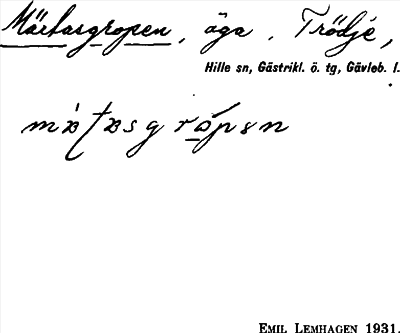 Märtasgropen, äga, Trödje,
Hille sn, Gästrikl. ö. tg, Gävleb. l.
EMIL LEMHAGEN 1931.